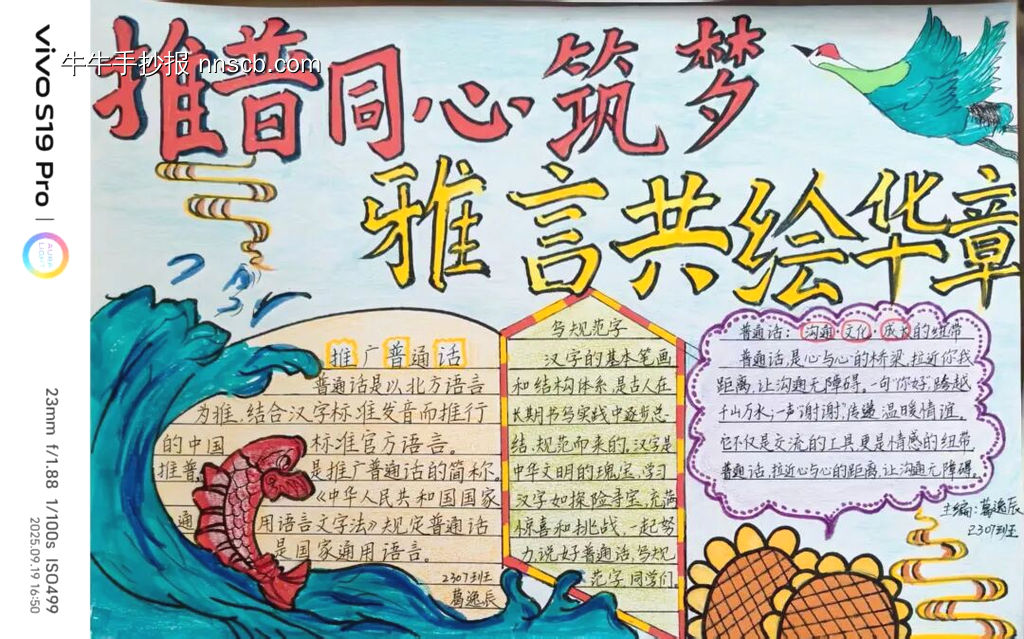 vivo S19 Pro
AURA LIGHT
23mm f/1.88 1/100s ISO499
2025.09.19 16:50
牛牛手抄报 nnscb.com
推普同心·筑梦
雅言共绘华章
推广普通话
普通话是以北方语言
为准,结合汉字标准发音而推行
的中国标准官方语言。
推普,是推广普通话的简称。
《中华人民共和国国家
通用语言文字法》规定普通话
是国家通用语言。
2307班
葛逸辰
写规范字
汉字的基本笔画
和结构体系,是古人在
长期书写实践中逐渐总
结、规范而来的。汉字是
中华文明的瑰宝,学习
汉字如探险寻宝,充满
惊喜和挑战,一起努
力,说好普通话,写规
范字同学们
普通话:沟通·文化·成长的纽带
普通话是心与心的桥梁,拉近你我
距离,让沟通无障碍。一句“你好”跨越
千山万水,一声谢谢,传递温暖情谊。
它不仅是交流的工具,更是情感的纽带
普通话,拉近心与心的距离,让沟通无障碍。
主编:葛逸辰
2307班